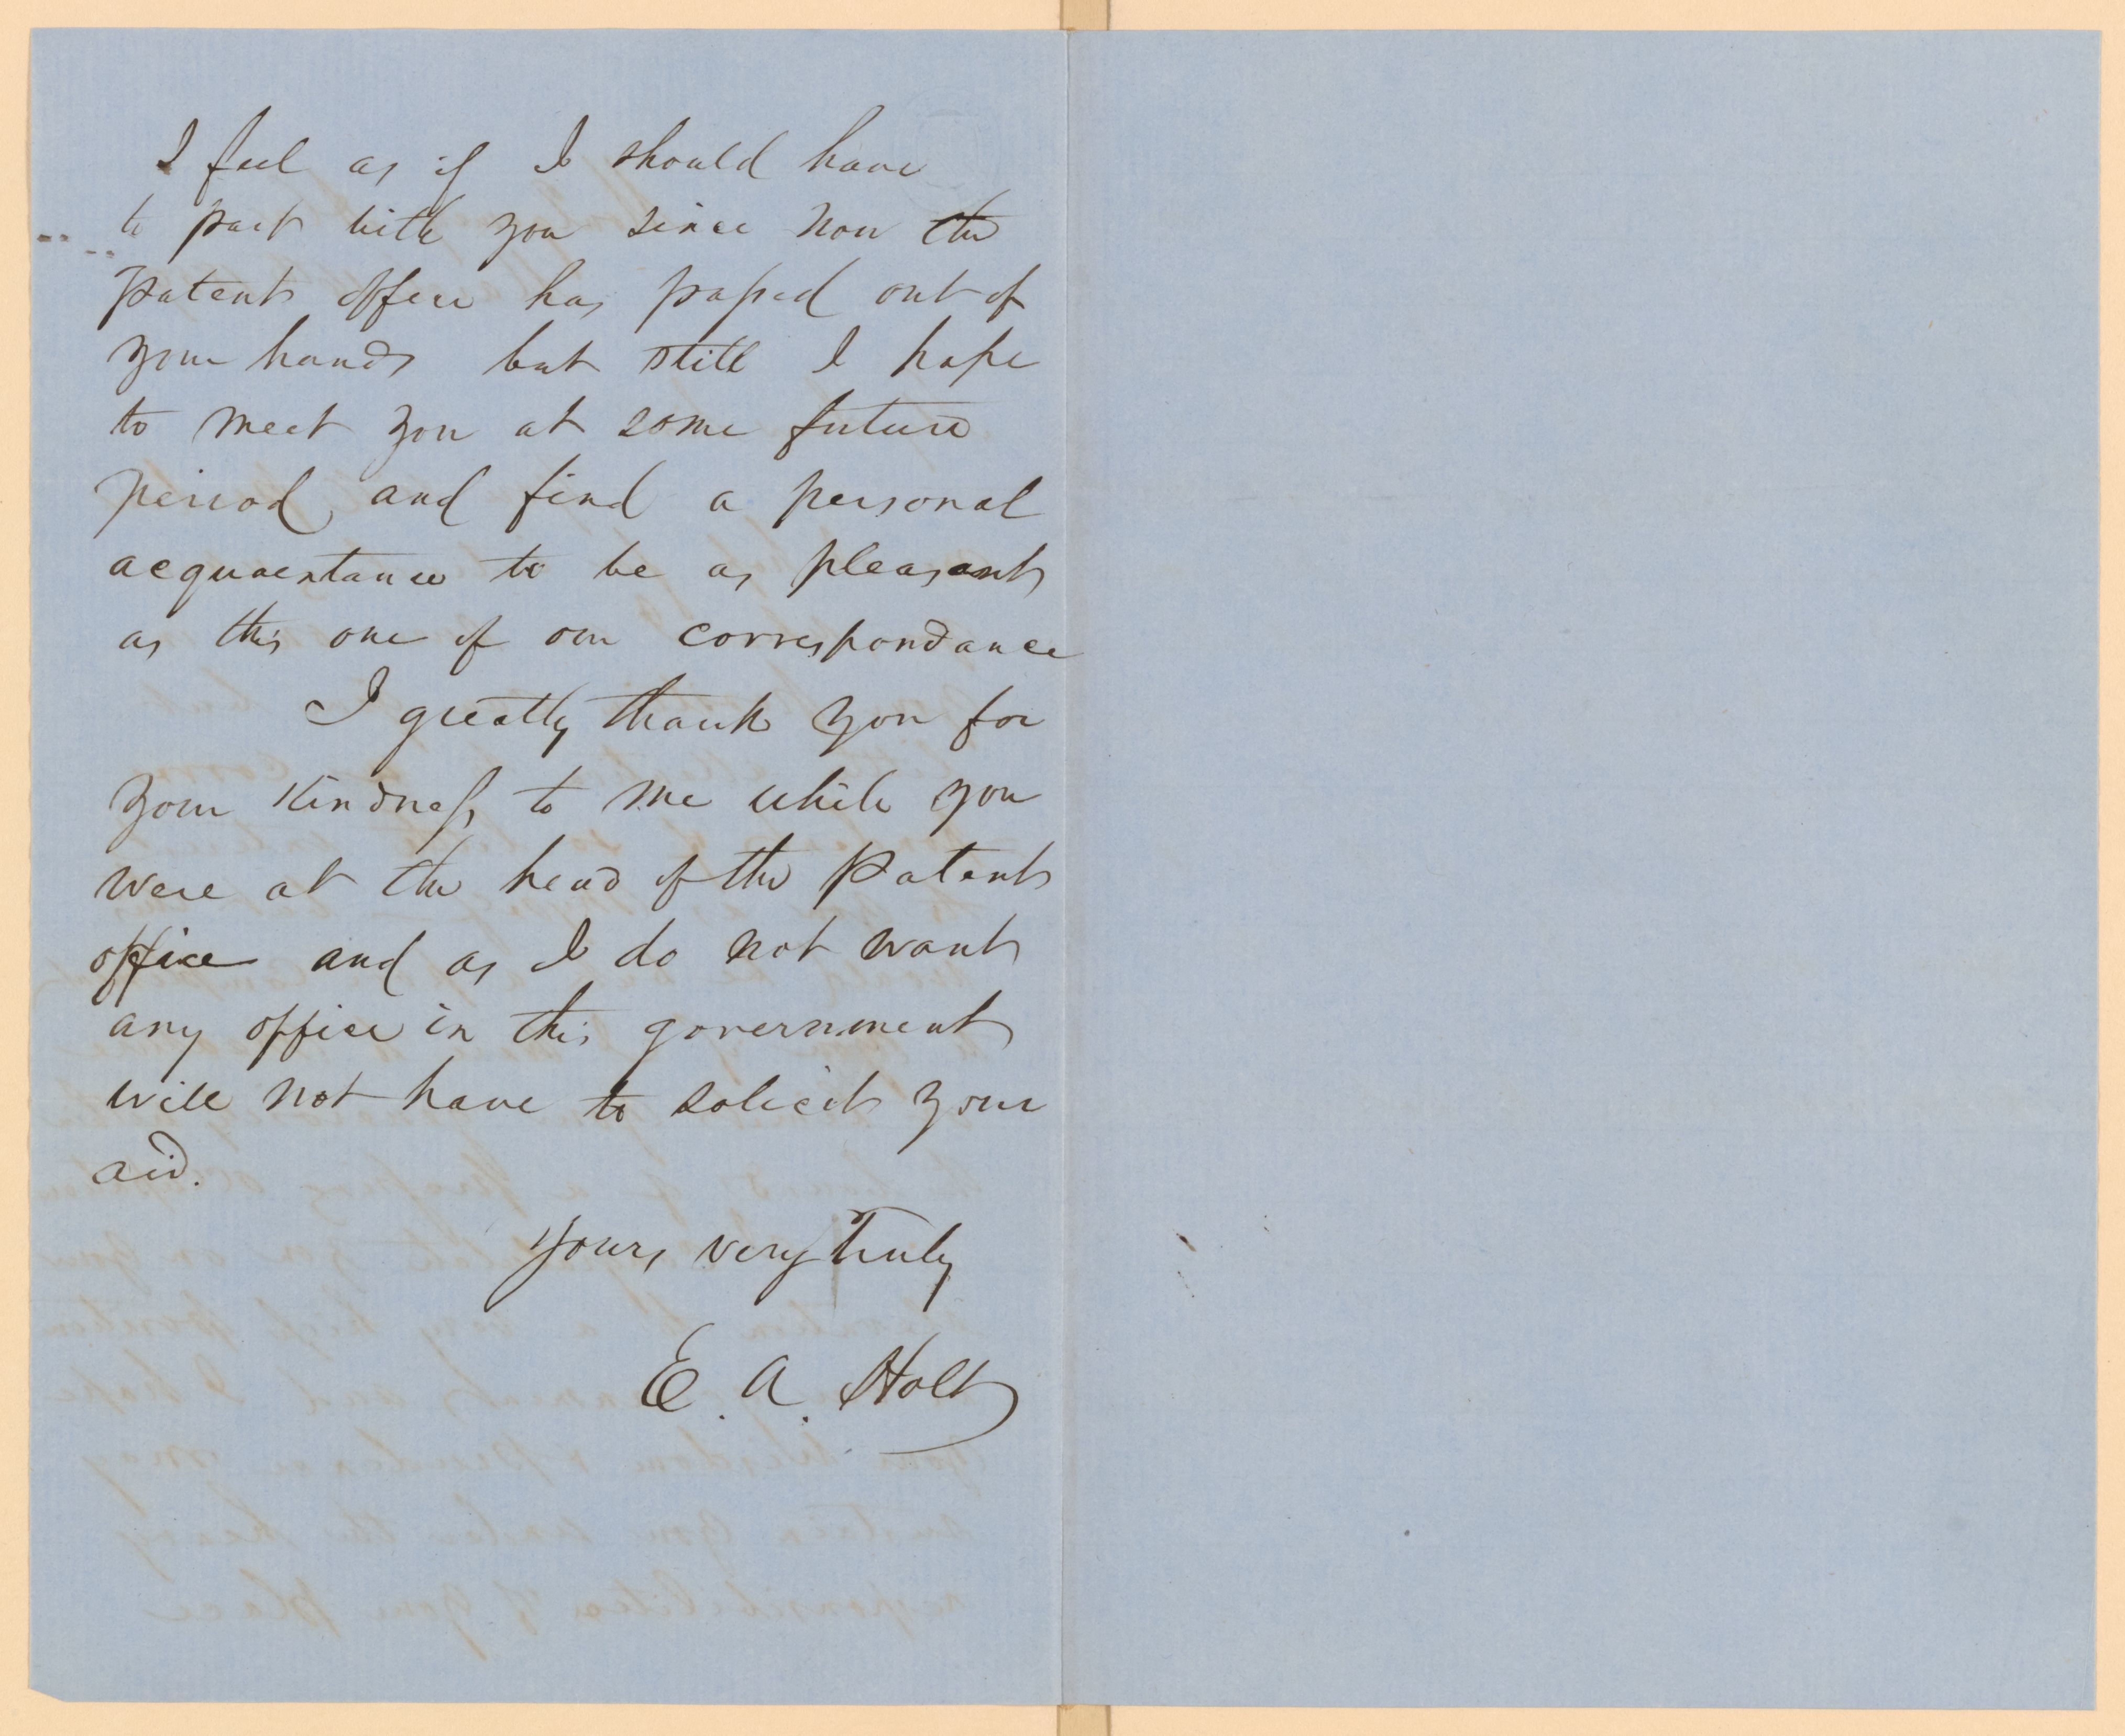 I feel as if I should have
to part with you since now the
Patent office has passed out of
your hands but still I hope
to meet you at some future
period and find a personal
acquaintance to be as pleasant
as this one of our correspondance
I greatly thank you for
your kindness to me while you
were at the head of the Patent
office and as I do not want
any office in this government
will not have to solicit your
aid.
Yours very truly
E. A. Holt